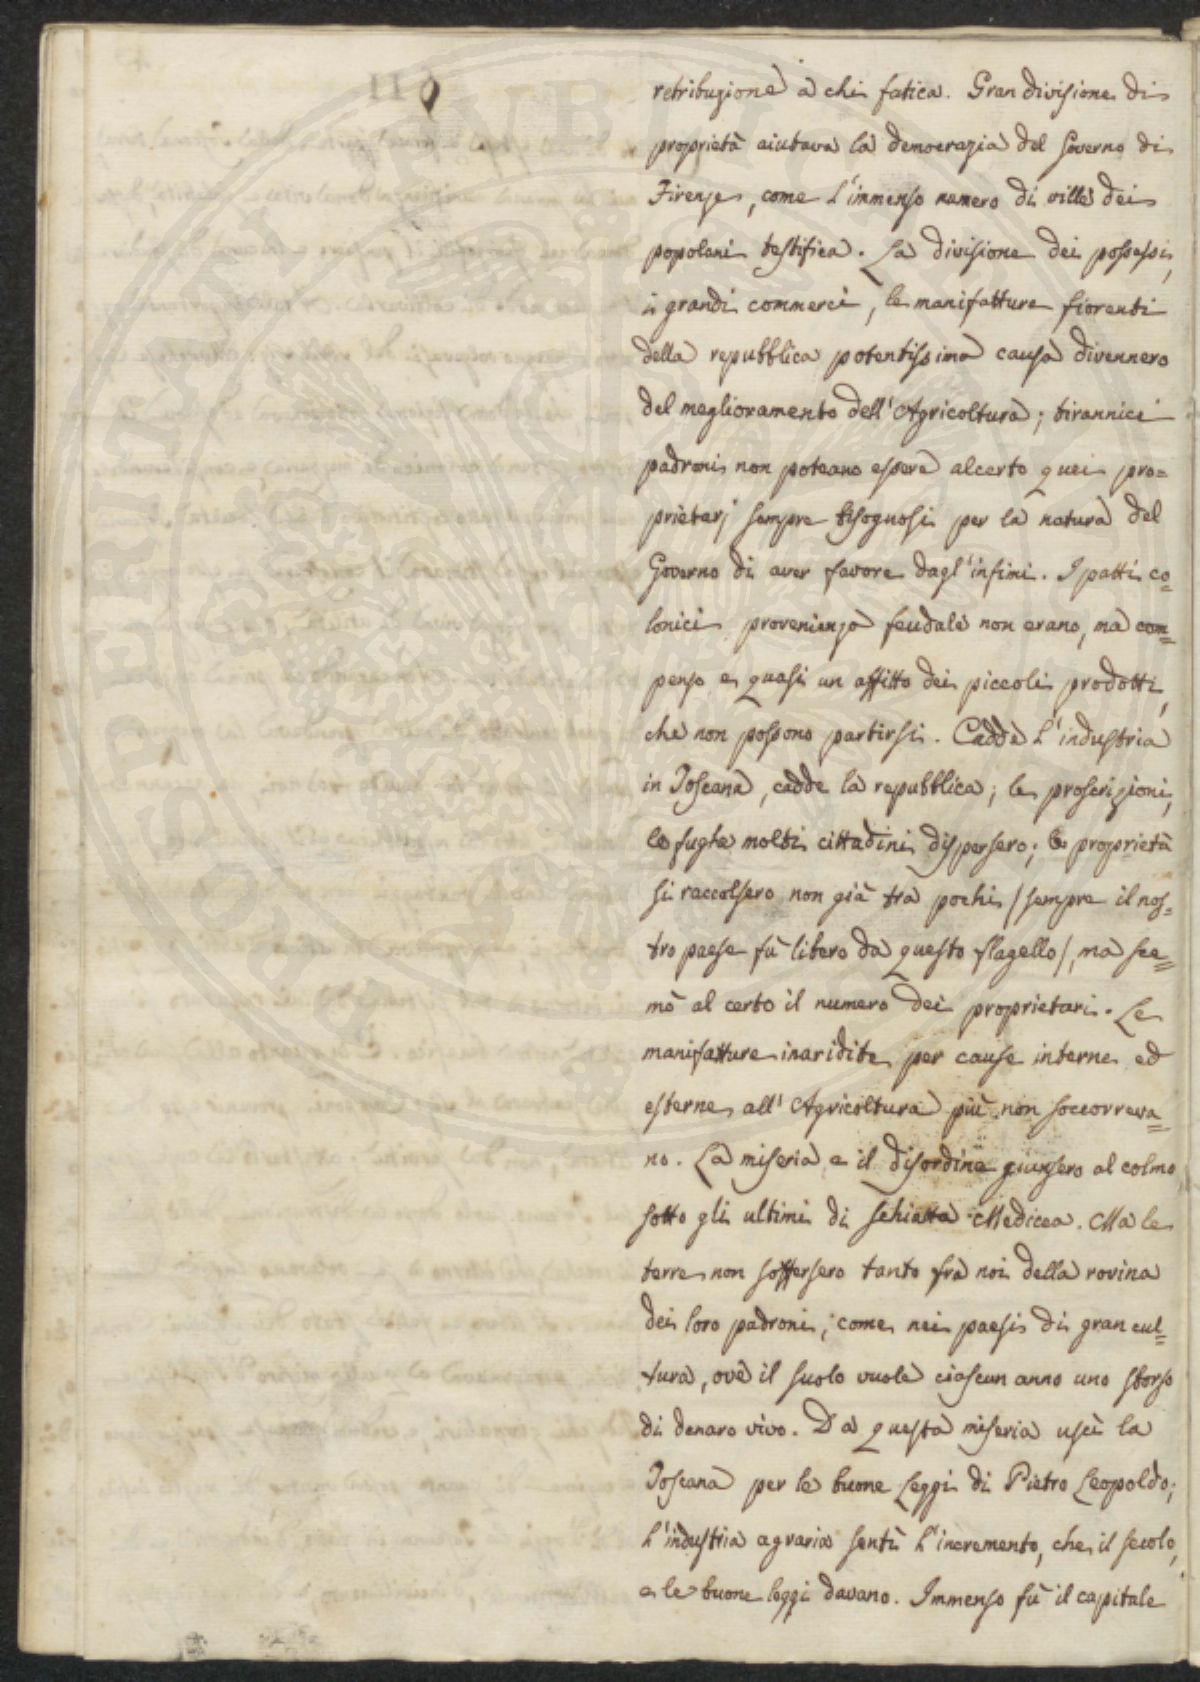 retribuzione a chi fatica. Gran divisione di
proprietà aiutava la democrazia del Governo di
Firenze, come l'immenso numero di ville dei
popolani testifica. La divisione dei possessi,
i grandi commerci, le manifatture fiorenti
della repubblica potentissima causa divennero
del miglioramento dell'Agricoltura; tirannici
padroni non poteano essere alcerto quei pro=
prietarj sempre bisognosi per la natura del
Governo di aver favore dagl'infimi. I patti co=
lonici provenienza feudale non erano, ma com=
penso e quasi un affitto dei piccoli prodotti,
che non possono partirsi. Cadde l'industria
in Toscana, cadde la repubblica; le proscrizioni,
le fughe molti cittadini dispersero; le proprietà
si raccolsero non già tra pochi /sempre il nos=
tro paese fù libero da questo flagello/, ma sce=
mò al certo il numero dei proprietari. Le
manifatture inaridite per cause interne ed
esterne all'Agricoltura più non soccorreva=
no. La miseria e il disordine giunsero al colmo
sotto gli ultimi di schiatta Medicea. Ma le
terre non soffersero tanto fra noi della rovina
dei loro padroni, come nei paesi di gran cul=
tura, ove il suolo vuole ciascun anno uno sborso
di denaro vivo. Da questa miseria uscì la
Toscana per le buone Leggi di Pietro Leopoldo;
l'industria agraria sentì l'incremento, che il secolo,
e le buone leggi davano. Immenso fù il capitale